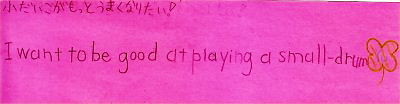 小だいこがもっとうまくなりたい!
I want to be good at playing a small-drum